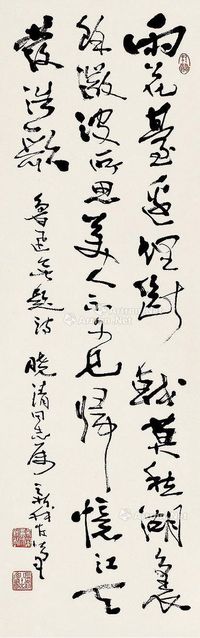 雨花台邊埋斷戟莫愁湖裏
餘微波所思美人不可見歸憶江天
發浩歌
魯迅無題詩
曉清同志屬